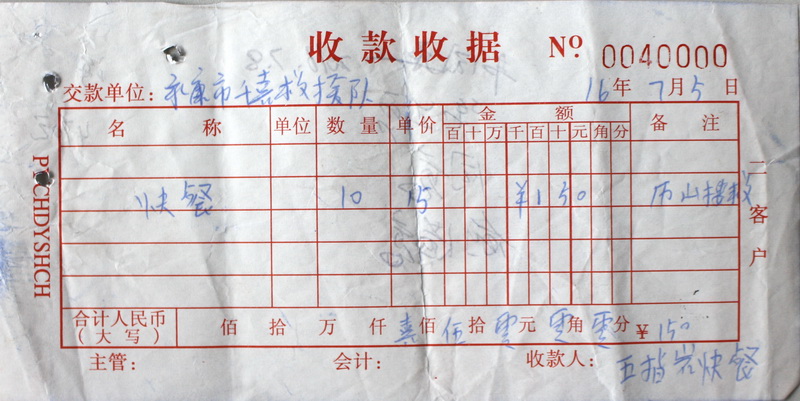 收款收据 No. 0040000
交款单位：永康市千喜救援队 16年7月5日
名称 单位 数量 单价 金额 备注
百十万千百十元角分
快餐 10 15 ¥150 历山搜救
合计人民币（大写） 佰拾万仟壹佰伍拾零元零角零分 ¥150
主管： 会计： 收款人：五指岩快餐
二客户
PYCHDYSHCH